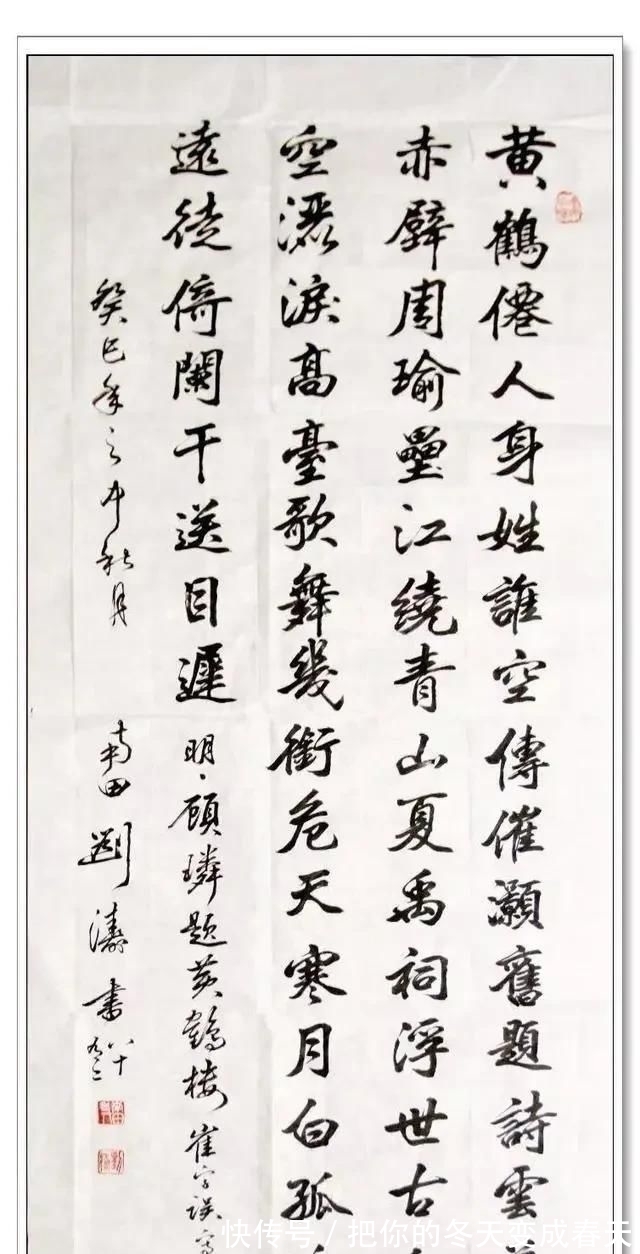 黄鶴僊人身姓誰空傳催灝舊題詩雲
赤壁周瑜壘江繞青山夏禹祠浮世古
空灑淚高臺歌舞幾銜危天寒月白孤
遠徒倚闌干送目遲 明、顾璘题黄鹤楼 崔字误写
癸巳年之中秋月 南田劉濤書 八十
快传号 / 把你的冬天变成春天